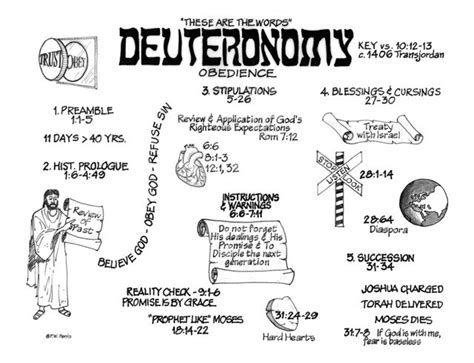 "THESE ARE THE WORDS"
DEUTERONOMY
OBEDIENCE
KEY vs. 10:12-13
c. 1406 Transjordan
TRUST
OBEY
1. PREAMBLE
1:1-5
11 DAYS > 40 YRS.
2. HIST. PROLOGUE
1:6-4:49
Review
of
Past
BELIEVE GOD - OBEY GOD - REFUSE SIN
3. STIPULATIONS
5-26
Review & Application of God's
Righteous Expectations
Rom 7:12
6:6
8:1-3
12:1, 32
INSTRUCTIONS
& WARNINGS
6:6-7:11
Do not Forget
His dealings & His
Promise & To
Disciple the next
generation
REALITY CHECK - 9:1-6
PROMISE IS BY GRACE.
"PROPHET LIKE" MOSES
18:14-22
31:24-29
Hard Hearts
4. BLESSINGS & CURSINGS
27-30
Treaty
with Israel
STOP
LOOK
LISTEN
28:1-14
28:64
Diaspora
5. SUCCESSION
31-34
JOSHUA CHARGED
TORAH DELIVERED
MOSES DIES
31:7-8 If God is with me,
fear is baseless